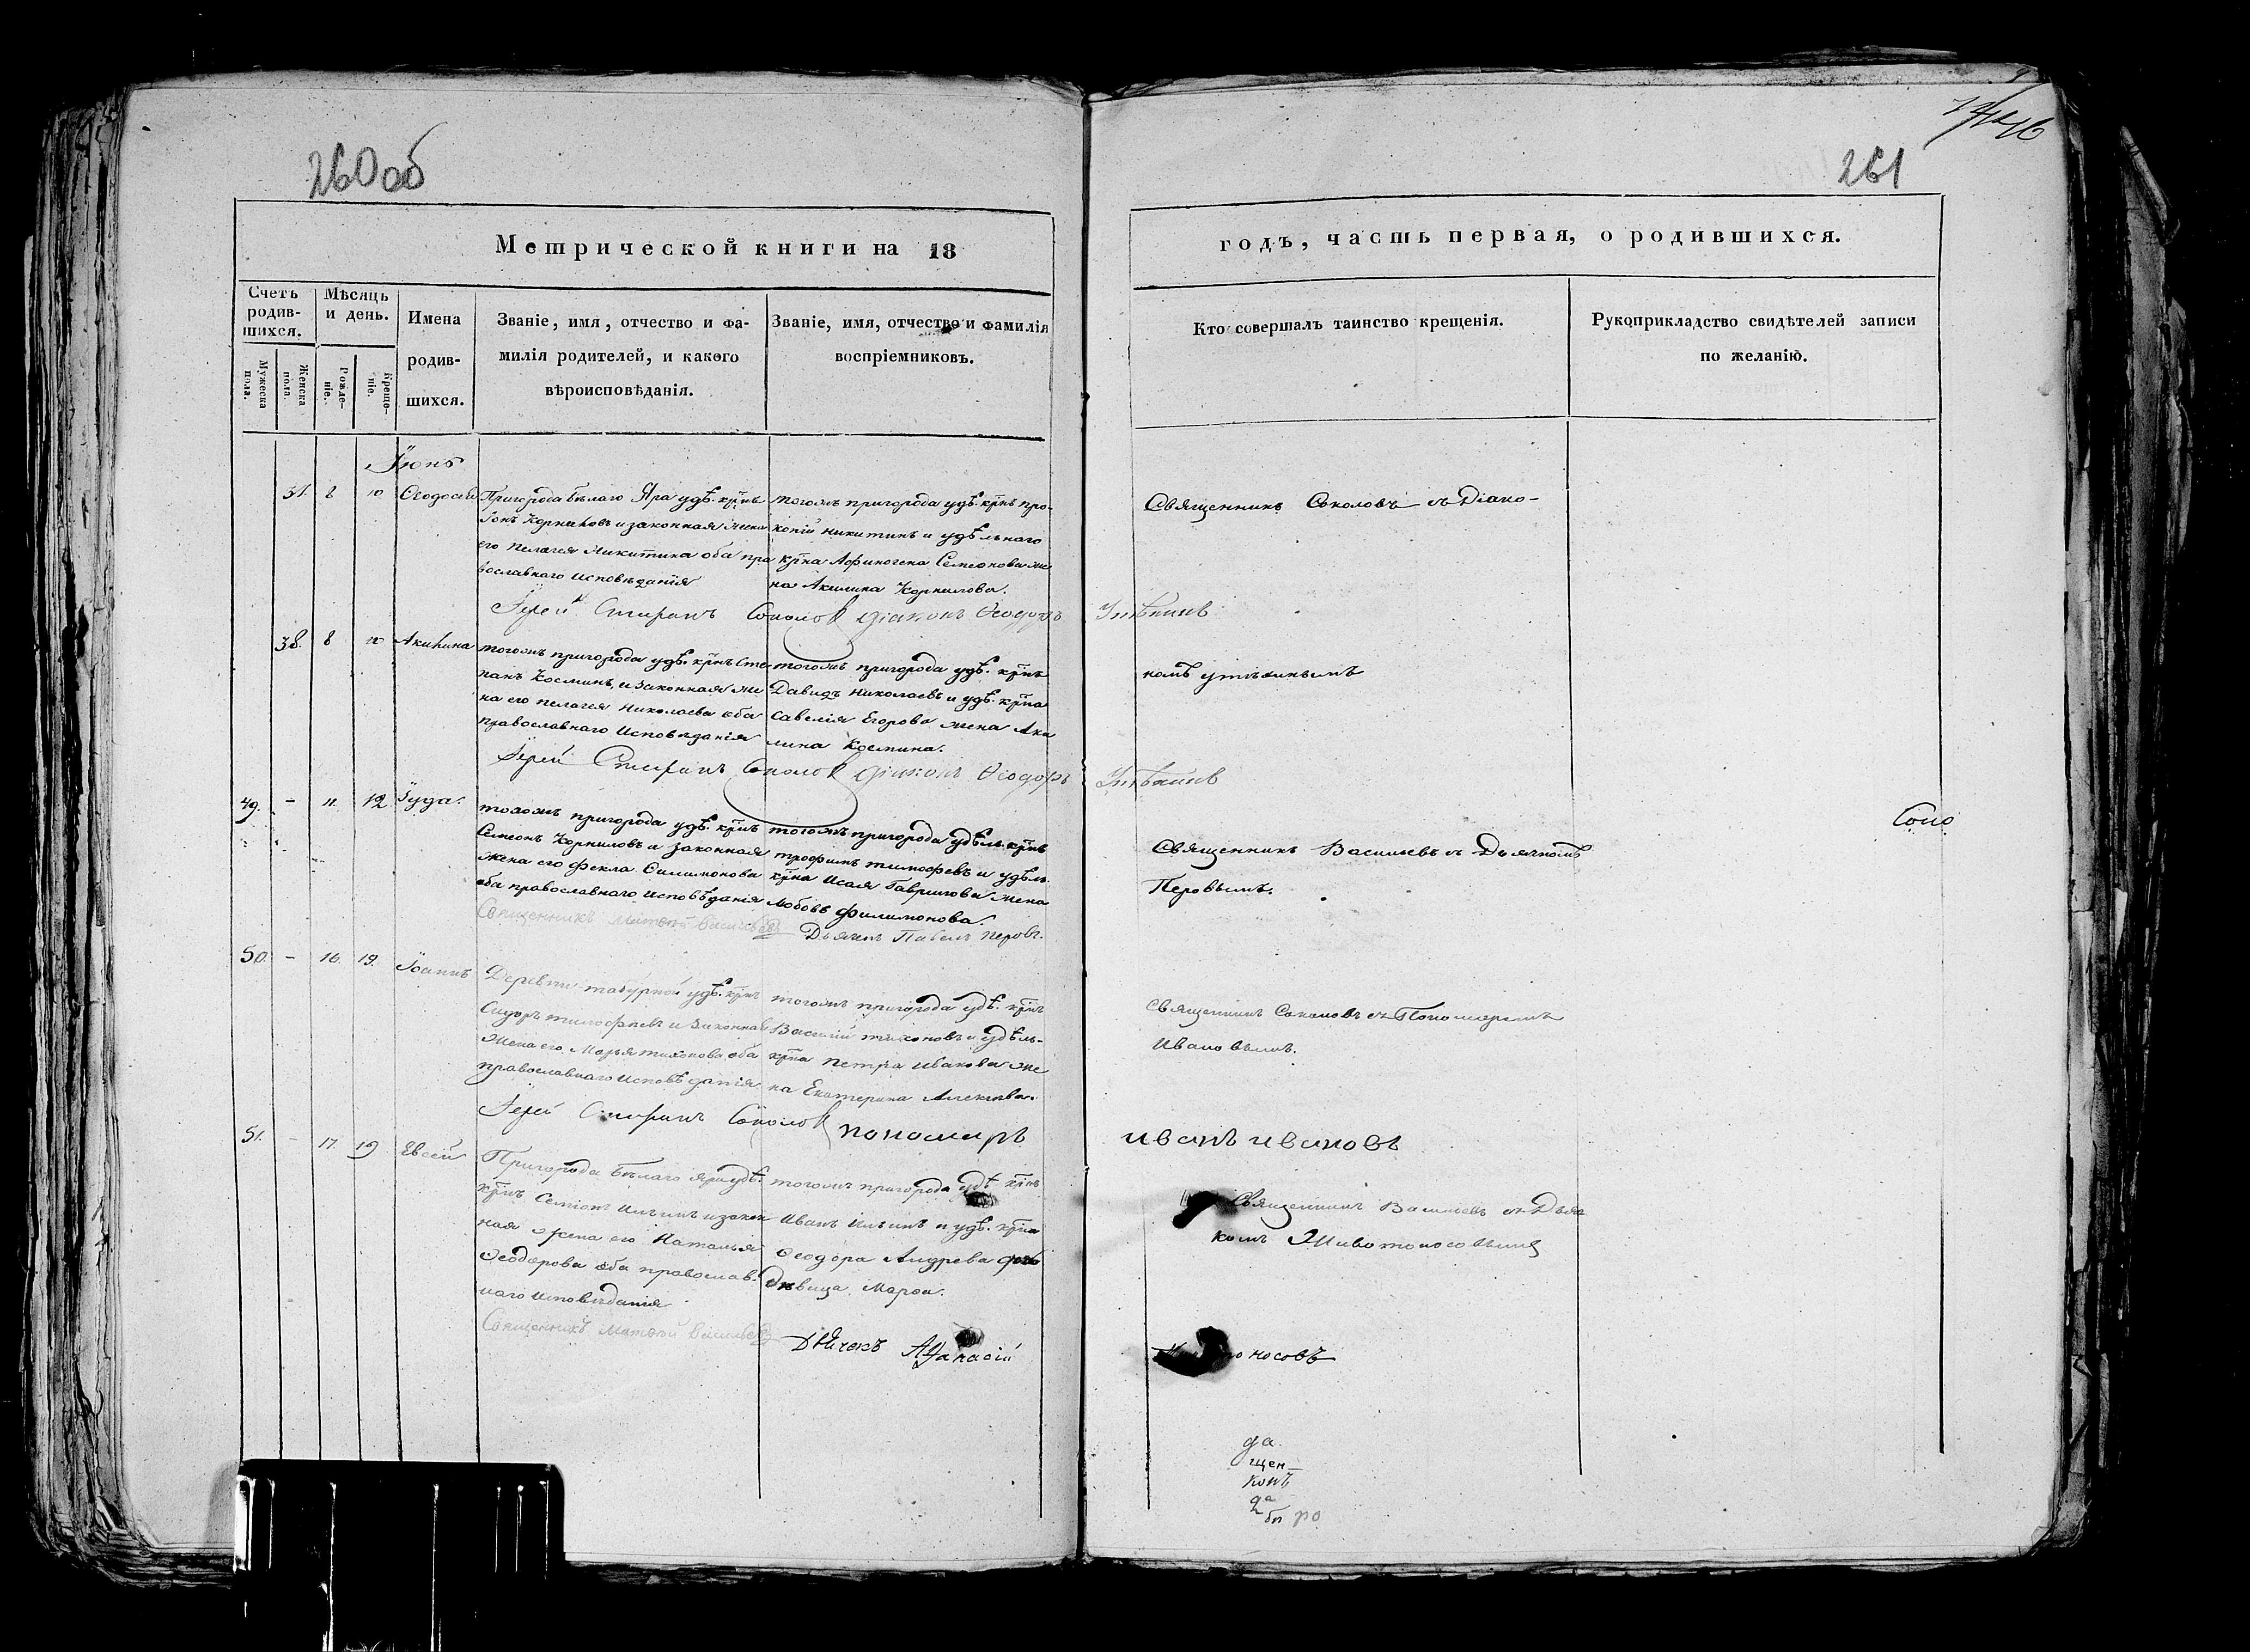 260 об
261
Метрической книги на 18
годъ, часть первая, о родившихся.
Счетъ родив-шихся.
Мужеска пола.
Женска пола.
Мѣсяць и день.
Рожде-ніе.
Креще-ніе.
Имена
родив-
шихся.
Званіе, имя, отчество и фа-
милія родителей, и какого
вѣроисповѣданія.
Званіе, имя, отчество и фамилія
воспріемниковъ.
Кто совершалъ таинство крещенія.
Рукоприкладство свидѣтелей записи
по желанію.
Іюнь
8 10
Пригорода бѣлаго Яра удѣ. крнъ
Іонъ Корниловъ и законная жена
его Пелагея Никитина оба пра
вославнаго исповѣданія
тогожъ пригорода удѣ. крнъ про-
копій Никитинъ и удѣльнаго
крна Афиногена Семеонова же
на Акилина Корнилова.
Священникъ Соколовъ съ Діако-
Іерей Соколовъ діаконъ Ѳеодоръ
38. 8 10 Акилина
тогожъ пригорода удѣ. крнъ Сте-
панъ Косминъ, и законная же
на его Пелагея Николаева оба
православнаго исповѣданія
тогожъ пригорода удѣ. крнъ
Давидъ Николаевъ и удѣ. крна
Савелія Егорова жена Аки
лина Космина.
номъ
Іерей Соколовъ діаконъ Ѳеодоръ
49. - 11. 12 Іуда.
тогожъ пригорода удѣ. крнъ
Семеонъ Корниловъ и законная
жена его Фекла Филимонова
оба православнаго исповѣданія
тогожъ пригорода удѣль. крнъ
трофимъ тимофевъ и удѣль.
крна Исая Гаврилова жена
Любовь филимонова.
Священникъ Васильевъ съ Дьячкомъ
Перовымъ.
Священникъ Матвей Васильевъ
Дьячекъ Павелъ Перовъ.
50. - 16. 19. Іоаннъ
Деревни удѣ. крнъ
Сидоръ тимофѣевъ и законная
жена его Марья тихонова оба
православнаго исповѣданія.
тогожъ пригорода удѣ. крнъ
Василій тихоновъ и удѣль-
крна петра иванова же
на Екатерина Алексѣева.
Священникъ Соколовъ съ Пономаремъ
Ивановымъ.
Іерей Соколовъ пономарь
иванъ ивановъ
51. - 17. 19 Евсей
Пригорода бѣлаго яра удѣ.
крнъ Семіонъ Ильинъ и закон
ная жена его Наталья
Ѳеодорова оба православ.
наго исповѣданія
тогожъ пригорода удѣ крнъ
Иванъ Ильинъ и удѣ. крна
Ѳеодора Андрева
дѣвица Марѳа.
Священникъ Васильевъ съ Дьяч
комъ Животоносовымъ
Священникъ Матвей Васильевъ
Дьячекъ Афанасій
носовъ
да.
щен-
комъ
да
бы ро